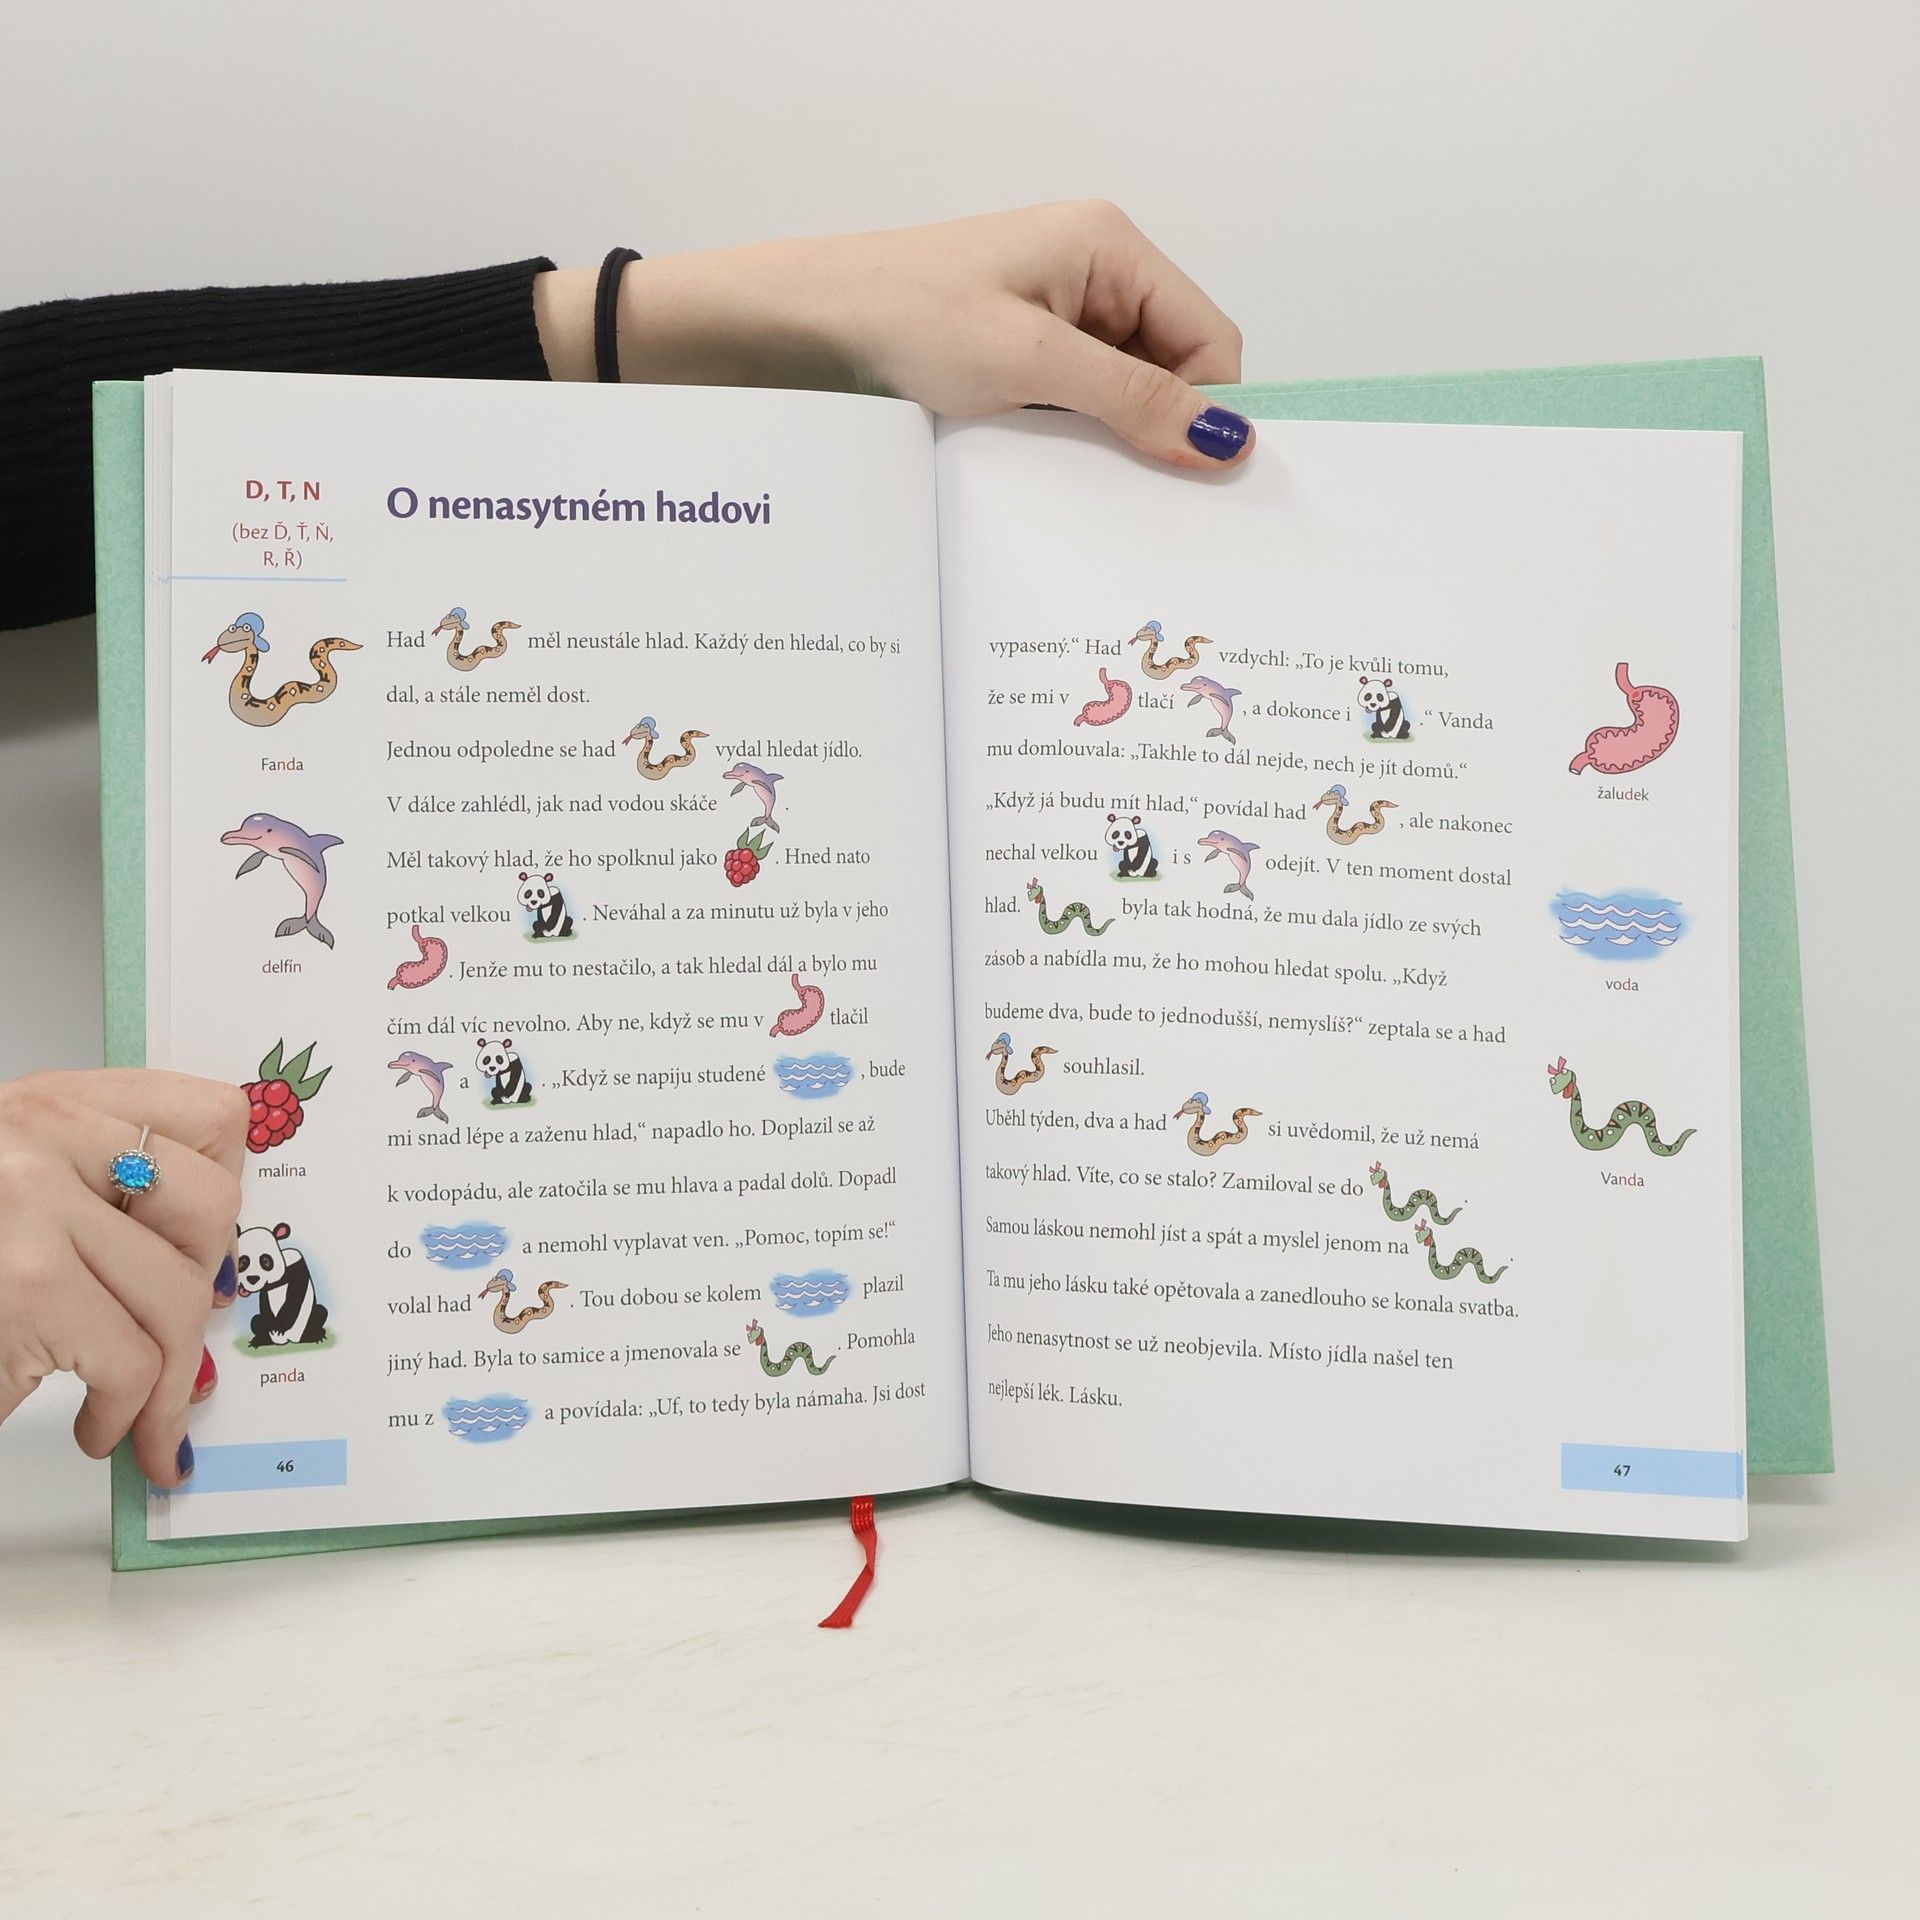 D, T, N
(bez Ď, Ť, Ň,
R, Ř)
Fanda
delfín
malina
panda
46
O nenasytném hadovi
Had měl neustále hlad. Každý den hledal, co by si
dal, a stále neměl dost.
Jednou odpoledne se had vydal hledat jídlo.
V dálce zahlédl, jak nad vodou skáče .
Měl takový hlad, že ho spolknul jako . Hned nato
potkal velkou . Neváhal a za minutu už byla v jeho
. Jenže mu to nestačilo, a tak hledal dál a bylo mu
čím dál víc nevolno. Aby ne, když se mu v tlačil
a . „Když se napiju studené , bude
mi snad lépe a zaženu hlad,“ napadlo ho. Doplazil se až
k vodopádu, ale zatočila se mu hlava a padal dolů. Dopadl
do a nemohl vyplavat ven. „Pomoc, topím se!“
volal had . Tou dobou se kolem plazil
jiný had. Byla to samice a jmenovala se . Pomohla
mu z a povídala: „Uf, to tedy byla námaha. Jsi dost
vypasený.“ Had vzdychl: „To je kvůli tomu,
že se mi v tlačí , a dokonce i .“ Vanda
mu domlouvala: „Takhle to dál nejde, nech je jít domů.“
„Když já budu mít hlad,“ povídal had , ale nakonec
nechal velkou i s odejít. V ten moment dostal
hlad. byla tak hodná, že mu dala jídlo ze svých
zásob a nabídla mu, že ho mohou hledat spolu. „Když
budeme dva, bude to jednodušší, nemyslíš?“ zeptala se a had
souhlasil.
Uběhl týden, dva a had si uvědomil, že už nemá
takový hlad. Víte, co se stalo? Zamiloval se do .
Samou láskou nemohl jíst a spát a myslel jenom na .
Ta mu jeho lásku také opětovala a zanedlouho se konala svatba.
Jeho nenasytnost se už neobjevila. Místo jídla našel ten
nejlepší lék. Lásku.
žaludek
voda
Vanda
47